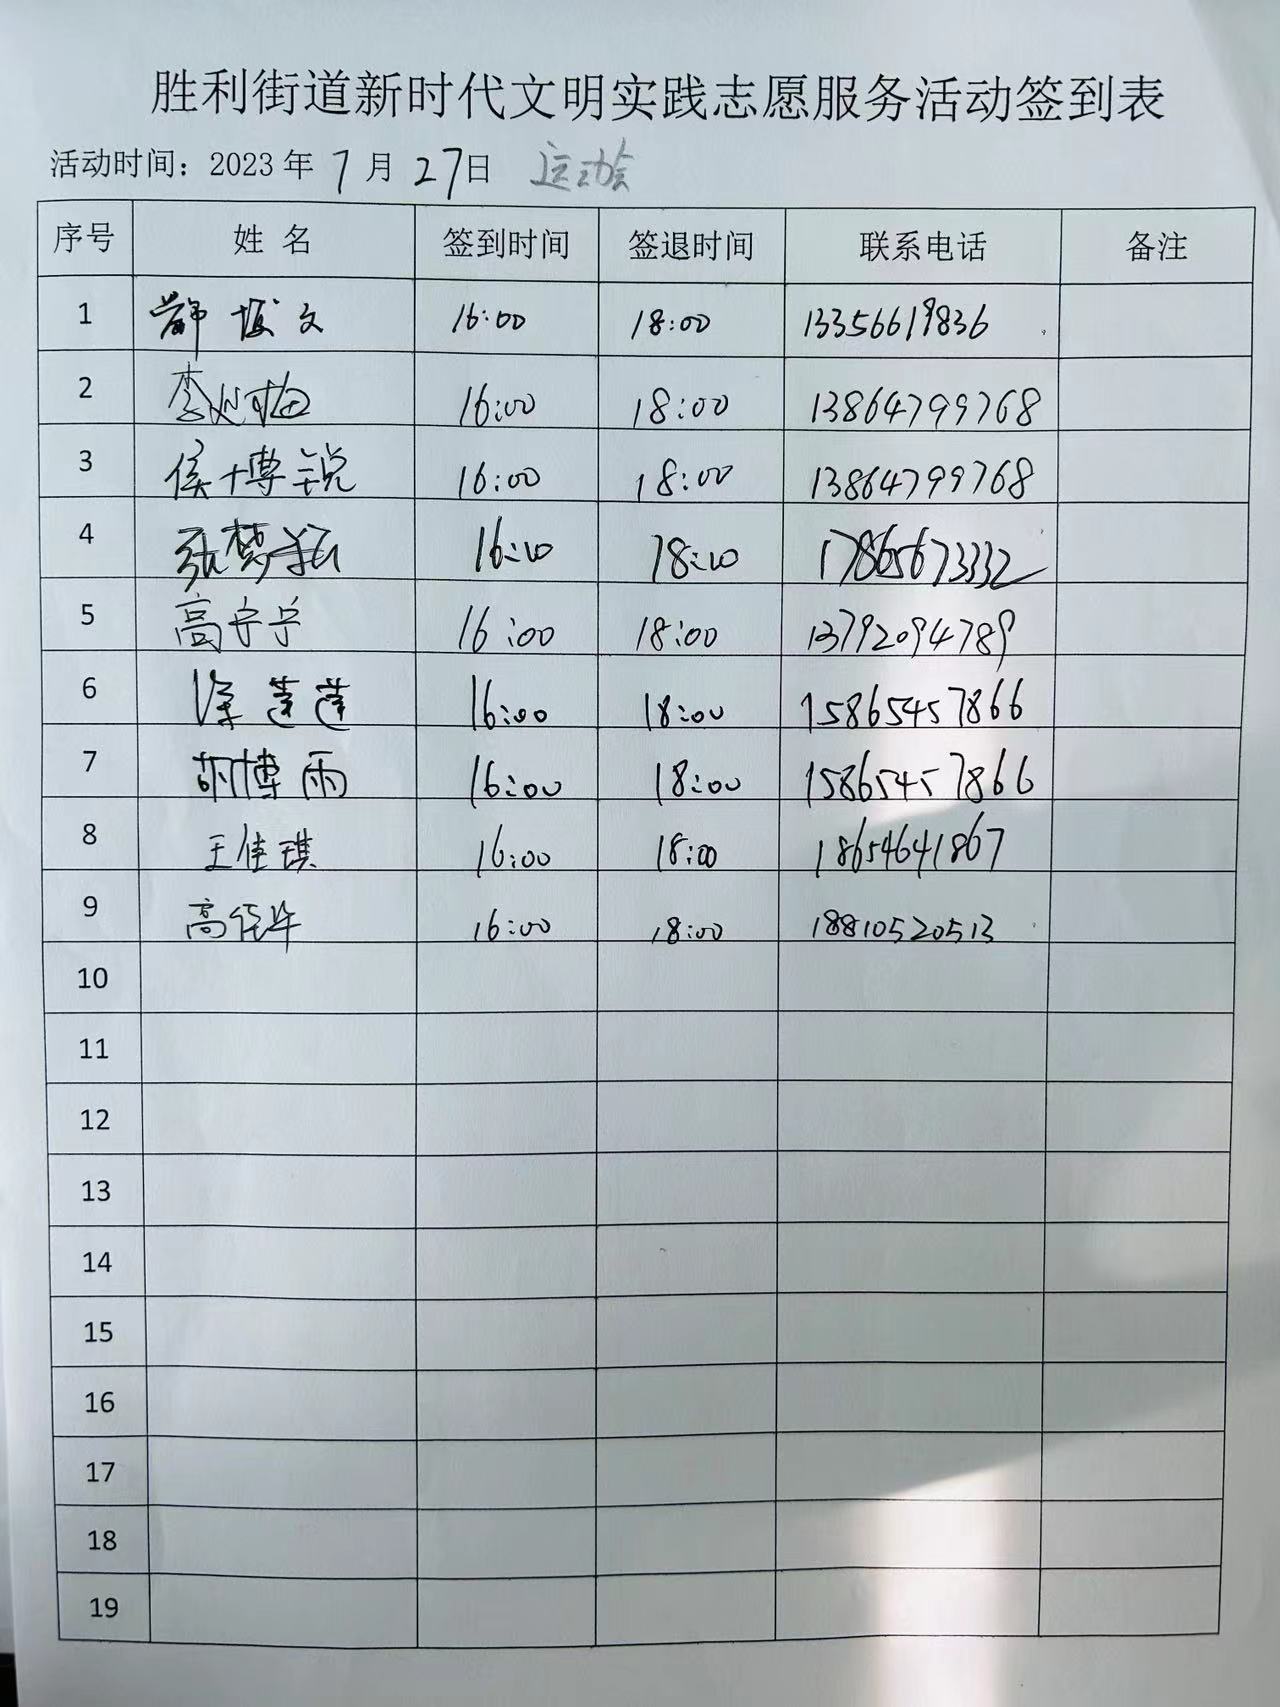 胜利街道新时代文明实践志愿服务活动签到表
活动时间：2023年 7月 27日 运动会
序号 姓名 签到时间 签退时间 联系电话 备注
1 文 16:00 18:00 13356619836
2 李 梅 16:00 18:00 13864799768
3 侯博锐 16:00 18:00 13864799768
4 张梦 16:10 18:10 17865673332
5 高宁宁 16:00 18:00 13792094789
6 徐莲莲 16:00 18:00 15865457866
7 胡博雨 16:00 18:00 15865457866
8 王佳琪 16:00 18:00 18654641867
9 高佳华 16:00 18:00 18810520513
10
11
12
13
14
15
16
17
18
19